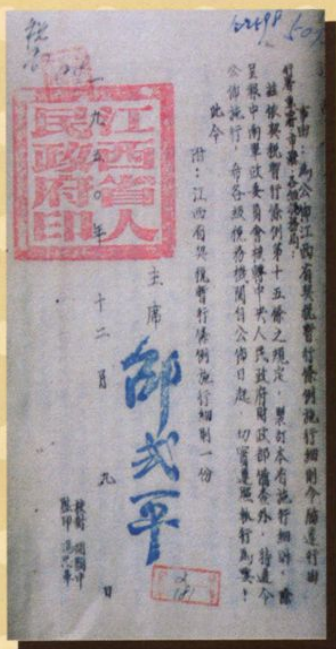 62498
事由：為公佈江西省契稅暫行條例施行細則令仰遵行由
茲依契稅暫行條例第十五條之規定，製訂本省施行細則，除
呈報中南軍政委員會核轉中央人民政府財政部備查外，特遵令
公佈施行，希各級稅務機關自公佈日起切實遵照執行為要！
此令
附：江西省契稅暫行條例施行細則一份
主席 邵式平
一九五〇年十二月九日
江西省人民政府印